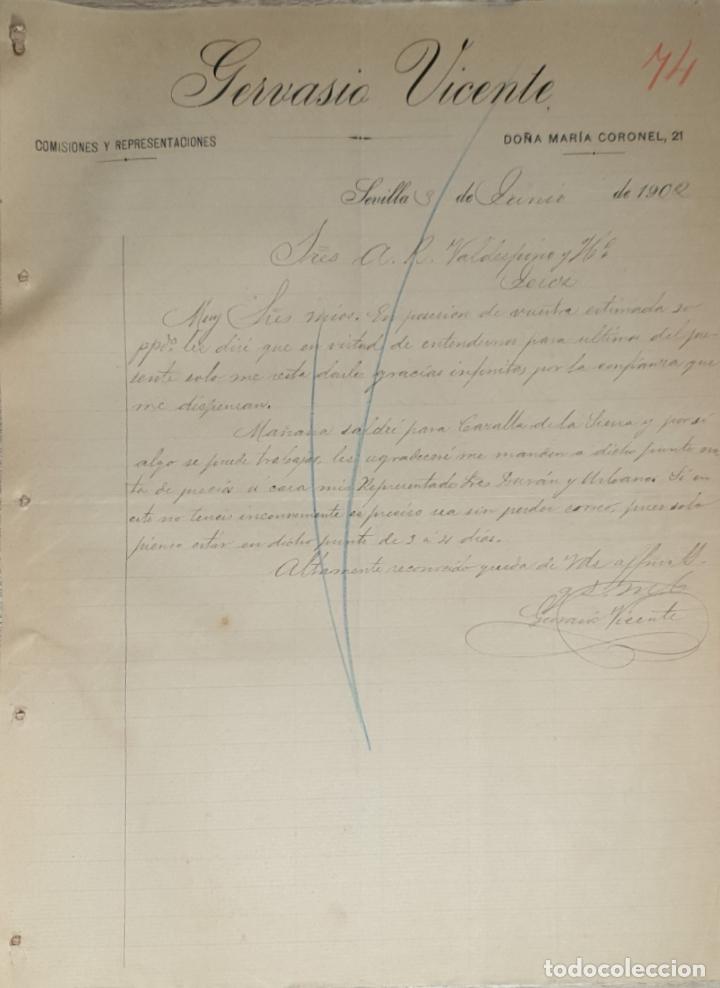 74
Gervasio Vicente
COMISIONES Y REPRESENTACIONES
DOÑA MARÍA CORONEL, 21
Sevilla 3 de Junio de 1902
Sres A. R. Valdespino y Hº
Jerez
Muy Sres mios. En posesion de vuestra estimada
les diré que en virtud de entendernos para ultimos del pre-
sente solo me resta darles gracias infinitas por la confianza que
me dispensan.
Mañana saldré para Cazalla de la Sierra y por si
algo se puede trabajar, les agradeceré me manden a dicho punto no-
ta de precios á casa mis Representados Sres Durán y Urbano. Si en
esto no teneis inconveniente es preciso sea sin perder correo, pues solo
pienso estar en dicho punto de 3 á 4 dias.
Altamente reconocido queda de Vds affmo
Gervasio Vicente
todocoleccion
todocoleccion.net